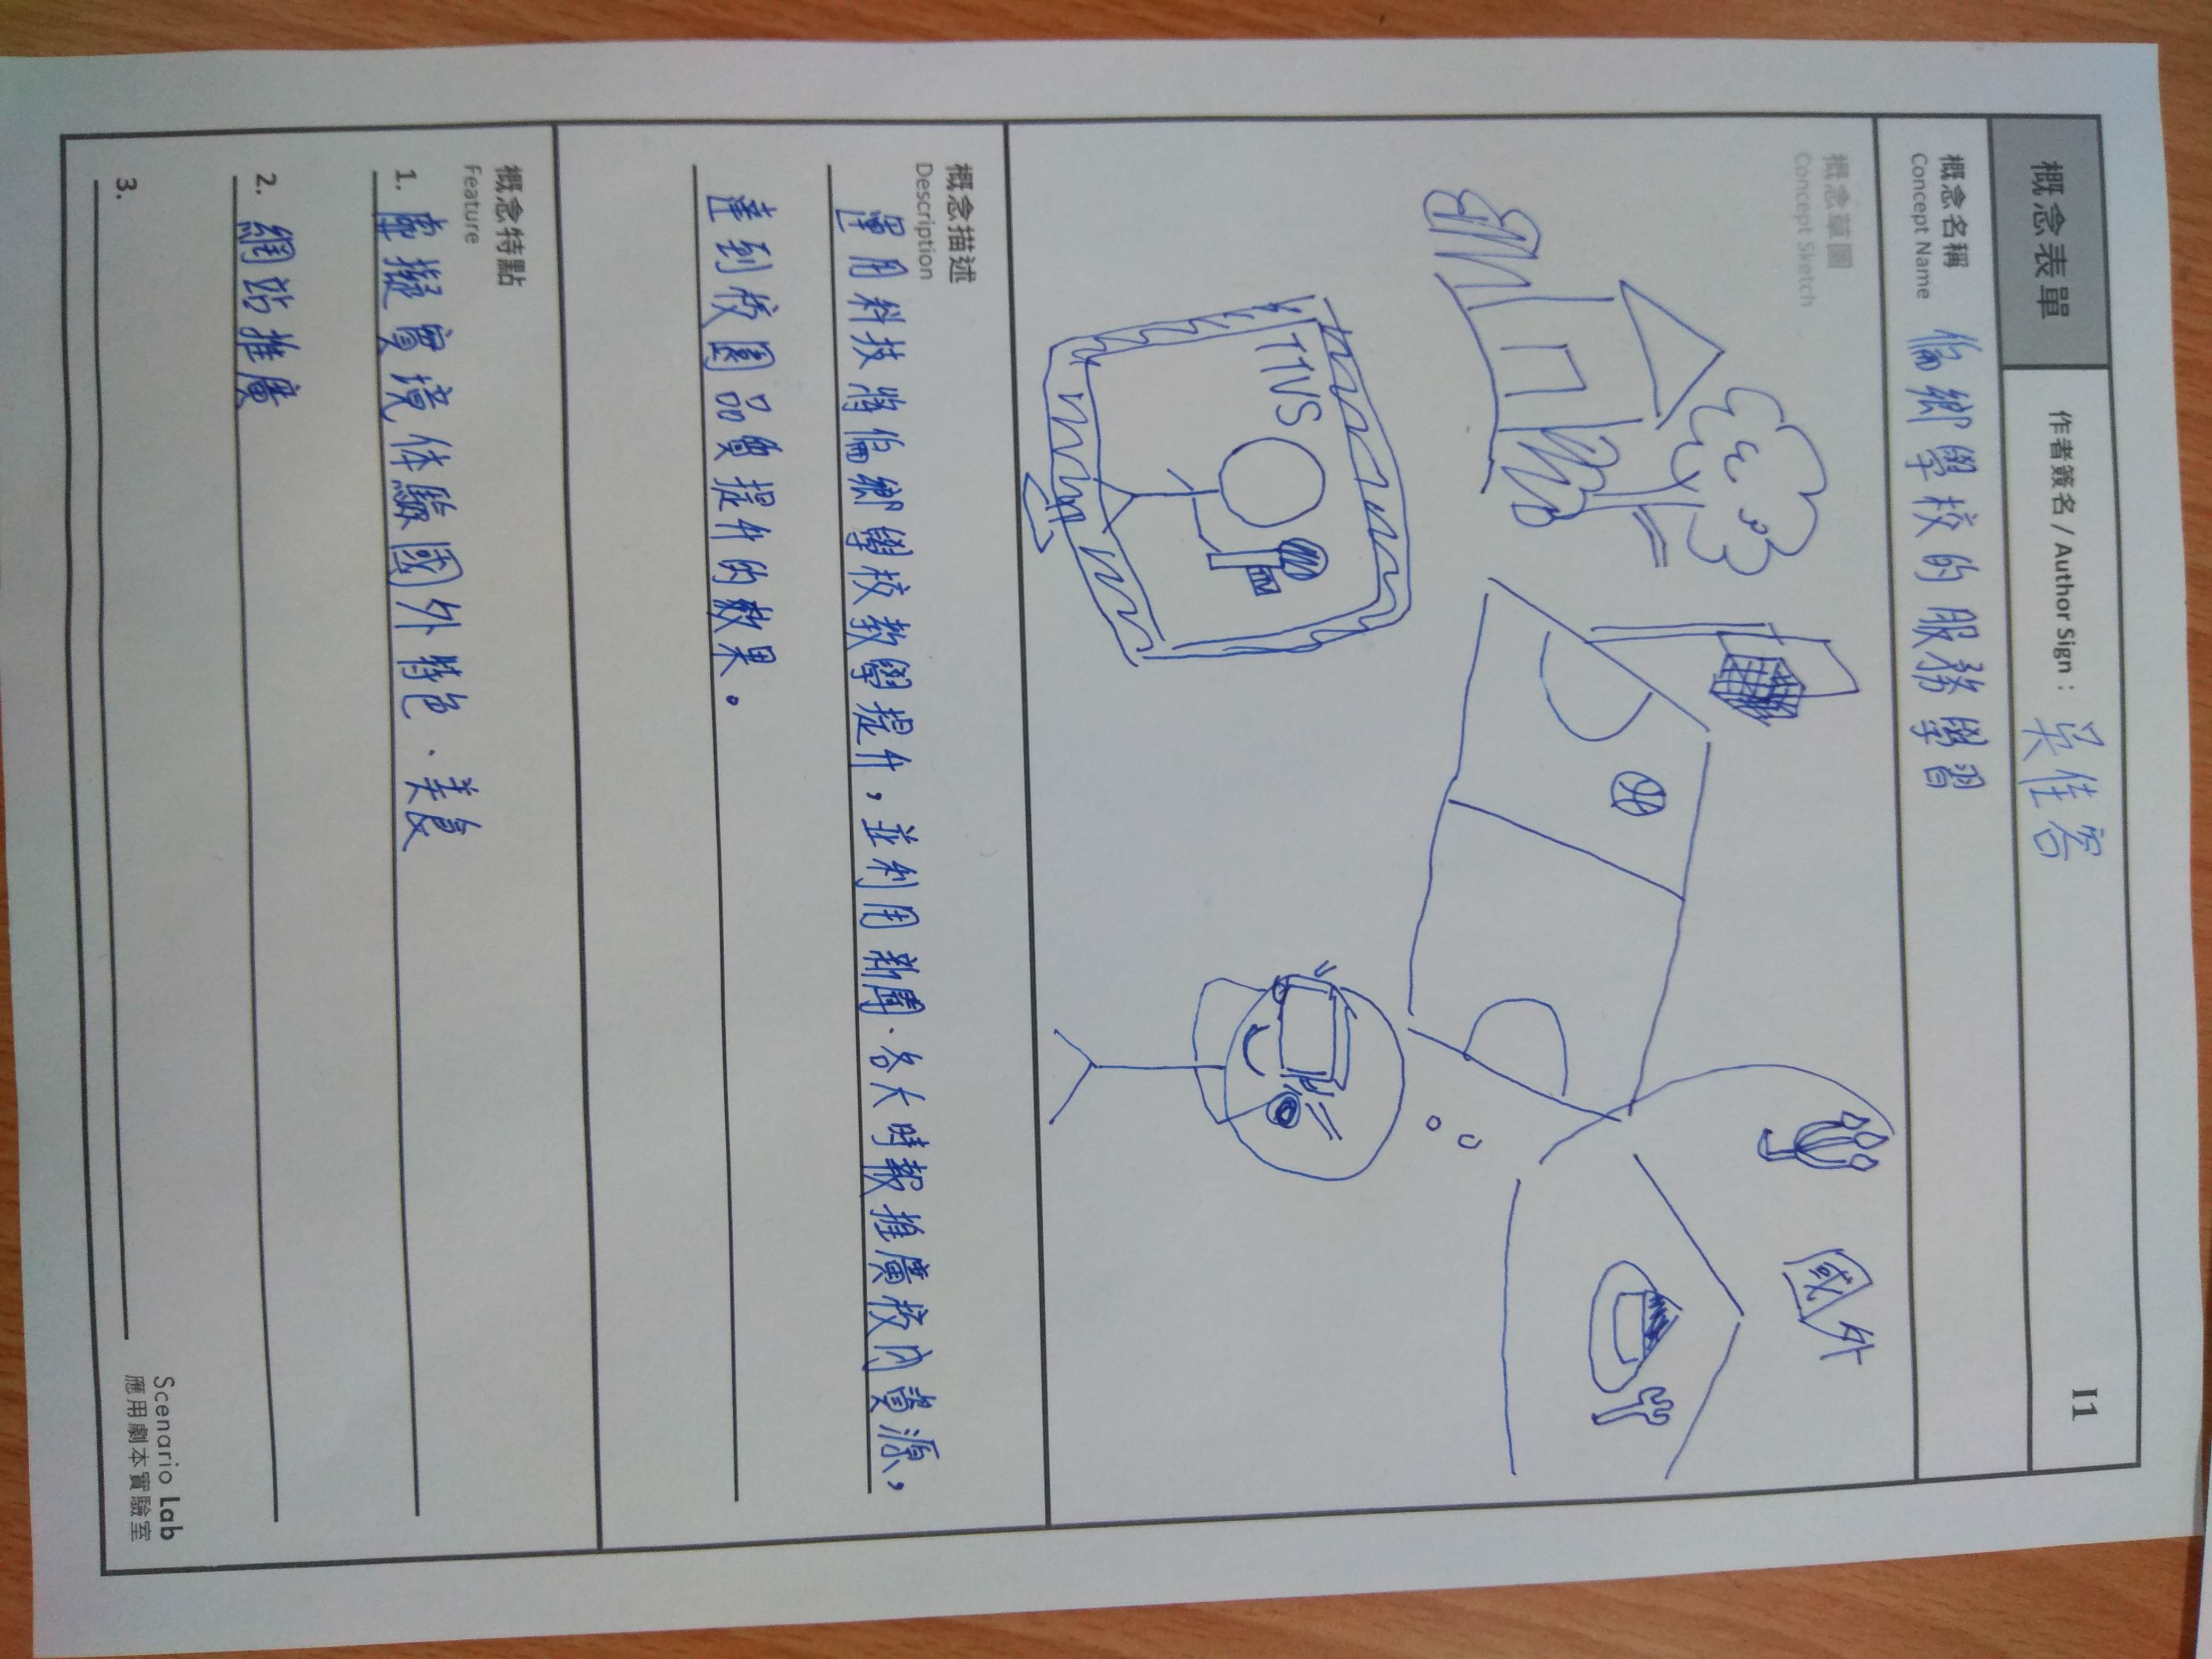 概念表單
作者簽名 / Author Sign : 吳佳容
I1
概念名稱
Concept Name
偏鄉學校的服務學習
概念草圖
Concept Sketch
國外
TTVS
概念描述
Description
運用科技將偏鄉學校教學提升，並利用新聞、各大時報推廣校內資源，
達到校園品質提升的效果。
概念特點
Feature
1. 虛擬實境体驗國外特色、美食
2. 網站推廣
3.
Scenario Lab
應用劇本實驗室